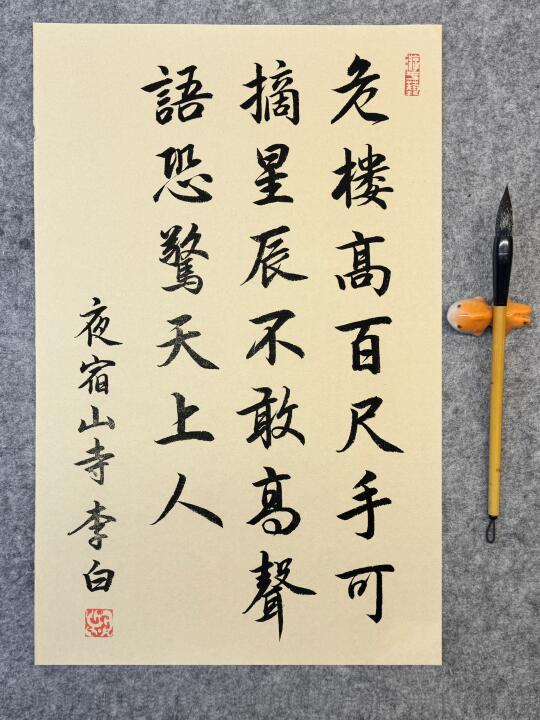 危楼高百尺手可
摘星辰不敢高聲
語恐驚天上人
夜宿山寺 李白